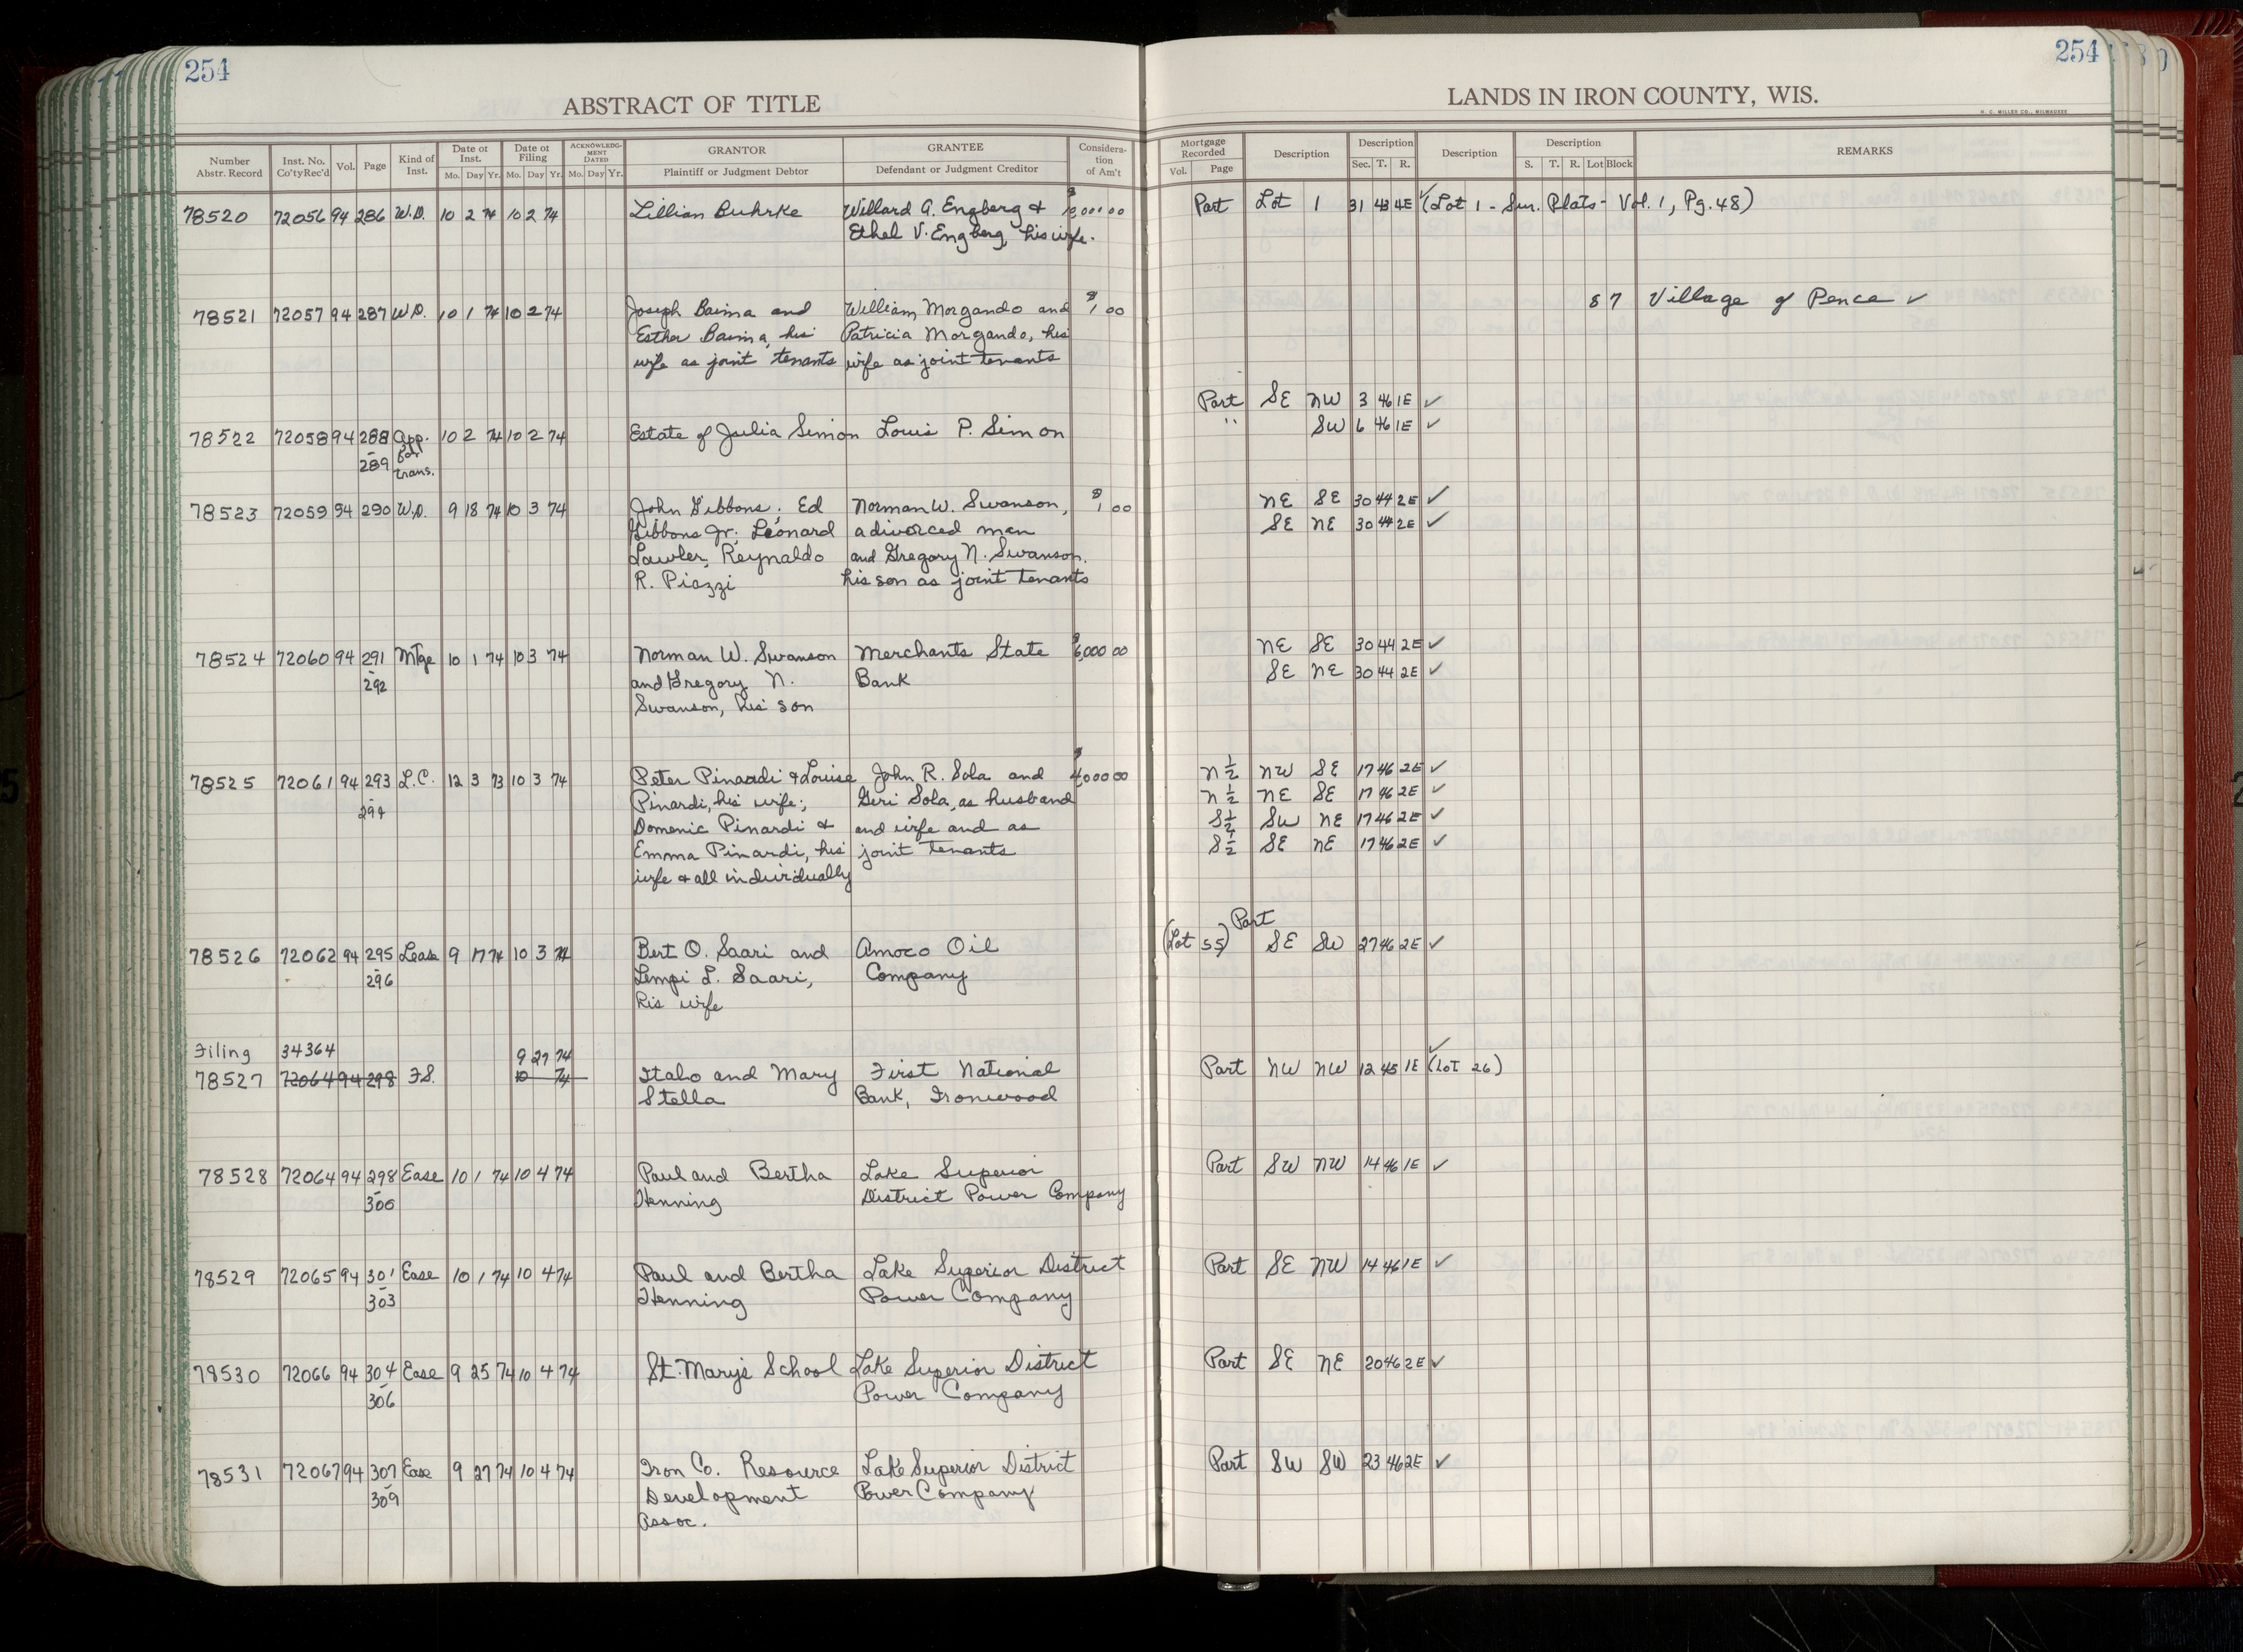 254
254
ABSTRACT OF TITLE
LANDS IN IRON COUNTY, WIS.
H. C. MILLER CO., MILWAUKEE
Number Abstr. Record | Inst. No. Co'ty Rec'd | Vol. | Page | Kind of Inst. | Date of Inst. Mo. Day Yr. | Date of Filing Mo. Day Yr. | ACKNOWLEDGMENT DATED Mo. Day Yr. | GRANTOR Plaintiff or Judgment Debtor | GRANTEE Defendant or Judgment Creditor | Consideration of Am't | Mortgage Recorded Vol. Page | Description | Description Sec. T. R. | Description | Description S. T. R. Lot Block | REMARKS
78520 72056 94 286 W.D. 10 2 74 10 2 74 Lillian Buhrke Willard A. Engberg & Part Lot 1 31 43 4E ✓ (Lot 1 - Sur. Plats - Vol. 1, Pg. 48)
Ethel V. Engberg, his wife.
78521 72057 94 287 W.D. 10 1 74 10 2 74 Joseph Baima and William Morgando and $1 00 8 7 Village of Pence ✓
Esther Baima, his Patricia Morgando, his
wife as joint tenants wife as joint tenants
Part SE NW 3 46 1E ✓
78522 72058 94 288 App. 10 2 74 10 2 74 Estate of Julia Simon Louis P. Simon " SW 6 46 1E ✓
- for
289 trans.
78523 72059 94 290 W.D. 9 18 74 10 3 74 John Gibbons; Ed Norman W. Swanson, $1 00 NE SE 30 44 2E ✓
Gibbons Jr; Leonard a divorced man SE NE 30 44 2E ✓
Lawler, Reynaldo and Gregory N. Swanson,
R. Piazzi his son as joint tenants
78524 72060 94 291 Mtge 10 1 74 10 3 74 Norman W. Swanson Merchants State $6,000 00 NE SE 30 44 2E ✓
- 292 and Gregory N. Bank SE NE 30 44 2E ✓
Swanson, his son
78525 72061 94 293 L.C. 12 3 73 10 3 74 Peter Pinardi & Louise John R. Sola and $4,000 00 N½ NW SE 17 46 2E ✓
- 294 Pinardi, his wife; Geri Sola, as husband N½ NE SE 17 46 2E ✓
Domenic Pinardi & and wife and as S½ SW NE 17 46 2E ✓
Emma Pinardi, his joint tenants S½ SE NE 17 46 2E ✓
wife & all individually
Part
78526 72062 94 295 Lease 9 17 74 10 3 74 Bert O. Saari and Amoco Oil (Lot 55) SE SW 27 46 2E ✓
- 296 Lempi L. Saari, Company
his wife
Filing 34364 9 27 74 ✓
78527 72064 94 298 F.S. 10 74 Italo and Mary First National Part NW NW 12 45 1E (Lot 26)
Stella Bank, Ironwood
78528 72064 94 298 Ease 10 1 74 10 4 74 Paul and Bertha Lake Superior Part SW NW 14 46 1E ✓
- 300 Henning District Power Company
78529 72065 94 301 Ease 10 1 74 10 4 74 Paul and Bertha Lake Superior District Part SE NW 14 46 1E ✓
- 303 Henning Power Company
78530 72066 94 304 Ease 9 25 74 10 4 74 St. Mary's School Lake Superior District Part SE NE 20 46 2E ✓
- 306 Power Company
78531 72067 94 307 Ease 9 27 74 10 4 74 Iron Co. Resource Lake Superior District Part SW SW 23 46 2E ✓
- 309 Development Power Company
Assoc.